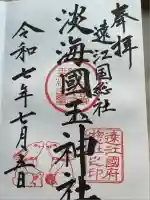 奉拝
遠江国総社
淡海國玉神社
令和七年七月五日
遠江國府
惣社之印